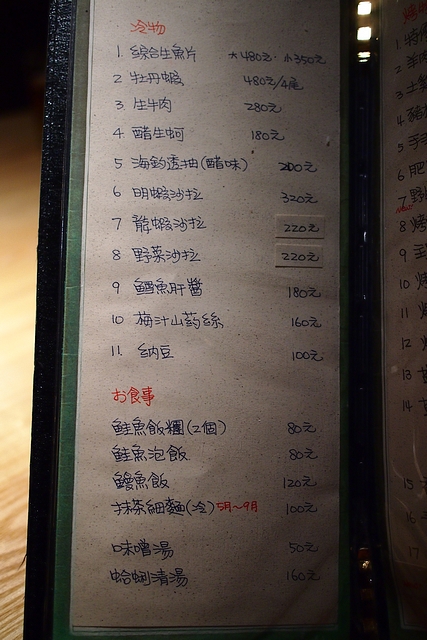 冷物
1. 綜合生魚片 大480元.小350元
2 牡丹蝦 480元/4尾
3. 生牛肉 280元
4 醋生蚵 180元
5 海釣透抽(醋味) 200元
6 明蝦沙拉 320元
7 龍蝦沙拉 220元
8 野菜沙拉 220元
9 鱈魚肝醬 180元
10 梅汁山药絲 160元
11. 納豆 100元
お食事
鮭魚飯糰(2個) 80元
鮭魚泡飯 80元
鰻魚飯 120元
抹茶細麵(冷)5月~9月 100元
味噌湯 50元
蛤蜊清湯 160元